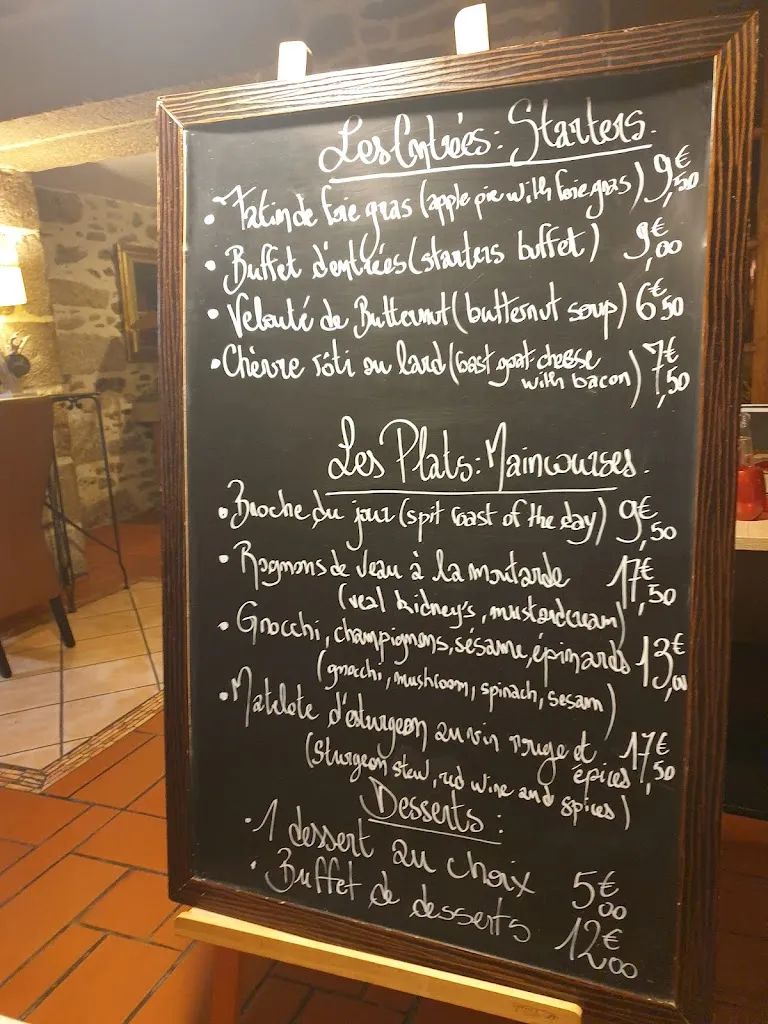 Les Entrées: Starters.
• Tatin de foie gras (apple pie with foie gras) 9€,50
• Buffet d'entrées (starters buffet) 9€,00
• Velouté de Butternut (butternut soup) 6€,50
• Chèvre rôti au lard (roast goat cheese
with bacon) 7€,50
Les Plats: Maincourses.
• Broche du jour (spit roast of the day) 9€,50
• Rognons de veau à la moutarde 17€,50
(veal kidney's, mustardcream)
• Gnocchi, champignons, sésame, épinards 13€,00
(gnocchi, mushroom, spinach, sesam)
• Matelote d'esturgeon au vin rouge et
épices 17€,50
(Sturgeon stew, red wine and spices)
Desserts:
• 1 dessert au choix 5€,00
• Buffet de desserts 12€,00